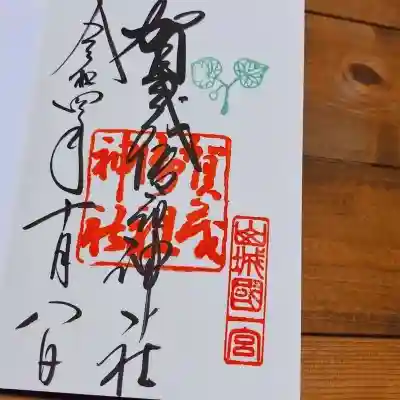 賀茂御祖神社
令和四年十月八日
賀茂
御祖
神社
山城國一宮